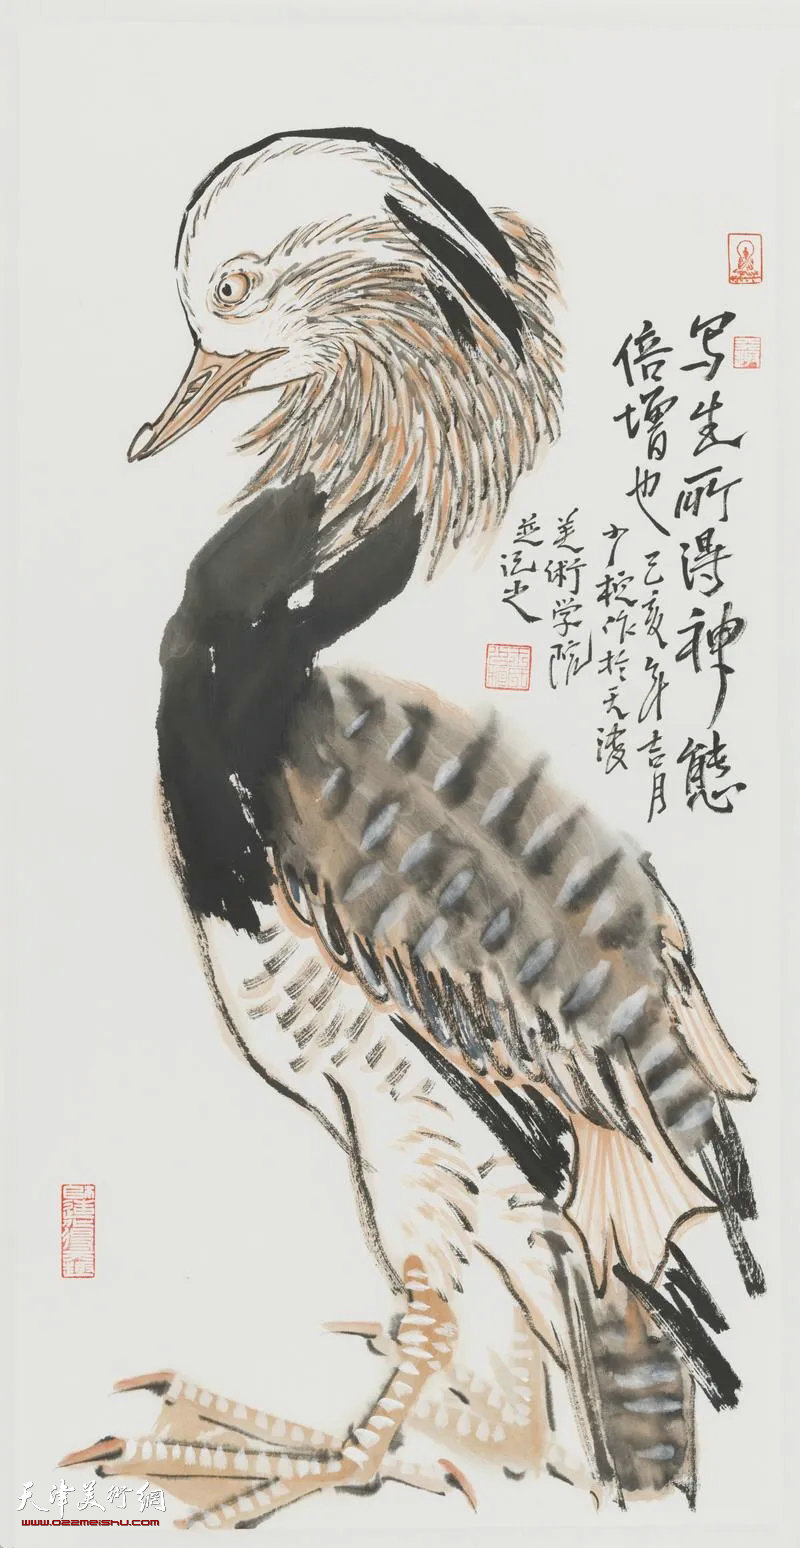 写生所得神態
倍增也己亥年吉月
少桓作於天津
美術学院
並记之
天津美術網
www.022meishu.com